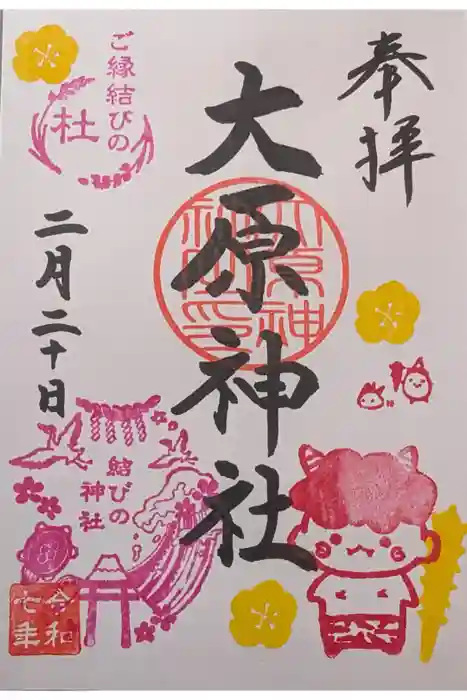 奉拝
大原神社
ご縁結びの
杜
二月二十日
結びの
神社
令和
七年